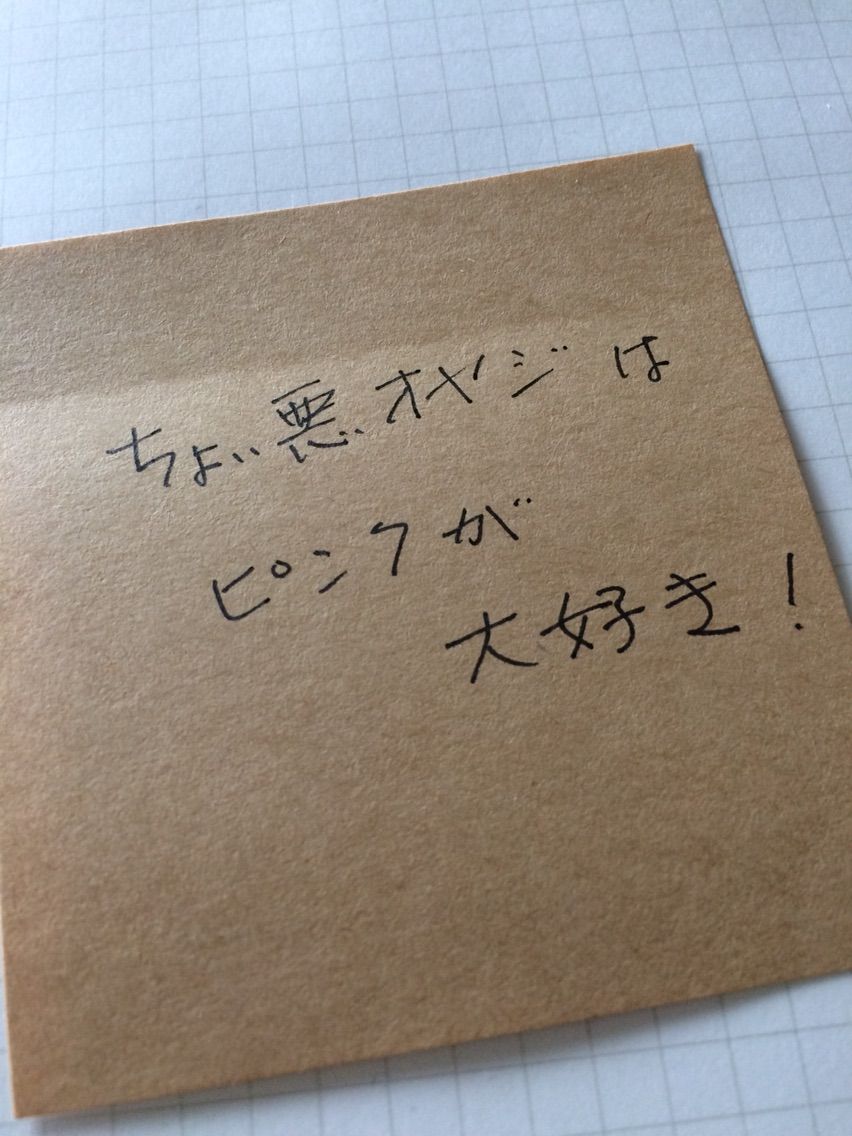 ちょい悪オヤジは
ピンクが
大好き！